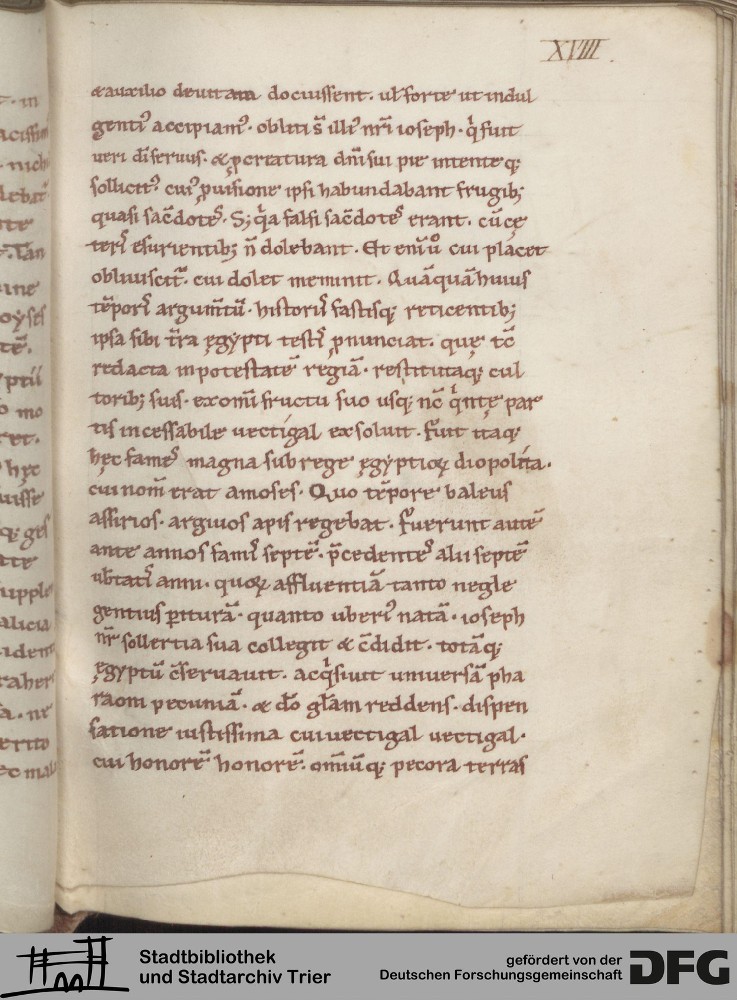 XVIII.
&auxilio deuitam docuissent. ul̄ forte ut indul
genti᾽ accipiam᾽. obliti s̄ illi᾽ nr̄i ioseph. q̓ fuit
ueri dī seruus. & ꝓ creatura dn̄i sui pie intenteq;
sollicit᾽. cui᾽ ꝓuisione ipsi habundabant frugib;
quasi sac̄dotes. S; q̓a falsi sac̄dotes erant. cū cę
teri᾽ esurientib; n̄ dolebant. Et eni᾽uo cui placet
obliuiscit᾽. cui dolet meminit. Quāquā huius
tēpori᾽ argum̄tū. historii᾽ fastisq; reticentib;
ipsa sibi t̄ra ęgypti testi᾽ ꝓnunciat. quę tc̄
redacta inpotestatē regiā. restitutaq; cul
torib; suis. exomī fructu suo usq; nc̄ q̓ntę par
tis incessabile uectigal exsoluit. Fuit itaq;
hęc fames magna sub rege ęgyptioꝝ diopolita.
cui nom̄ erat amoses. Quo tēpore baleus
assirios. argiuos apis regebat. Fuerunt autē
ante annos fami᾽ septē. p̄cedentes alii septē
ub̄tati᾽ anni. quoꝝ affluentiā tanto negle
gentius ꝑiturā. quanto uberi᾽ natā. ioseph
nr̄ sollertia sua collegit & c̄didit. totāq;
ęgyptū c̄seruauit. acq̓siuit uniuersā pha
raoni pecuniā. & dō gl̄am reddens. dispen
satione iustissima cui uectigal uectigal.
cui honorē honorē. omīuq; pecora terras
Stadtbibliothek
und Stadtarchiv Trier
gefördert von der
Deutschen Forschungsgemeinschaft
DFG